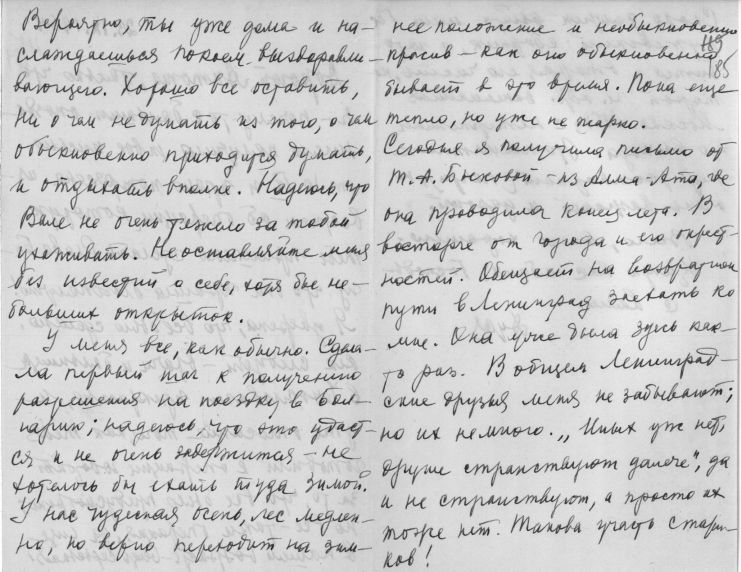 Вероятно, ты уже дома и на-
слаждаешься покоем выздоравли-
вающего. Хорошо все оставить,
ни о чем не думать из того, о чем
обыкновенно приходится думать,
и отдыхать вполне. Надеюсь, что
Вале не очень тяжело за тобой
ухаживать. Не оставляйте меня
без известий о себе, хотя бы не-
больших открыток.
У меня все, как обычно. Сдела-
ла первый шаг к получению
разрешения на поездку в Бол-
гарию; надеюсь, что это удаст-
ся и не очень задержится – не
хотелось бы ехать туда зимой.
У нас чудесная осень, лес медлен-
но, но верно переходит на зим-
нее положение и необыкновенно
красив – как оно обыкновенно
бывает в это время. Пока еще
тепло, но уже не жарко.
Сегодня я получила письмо от
Т.А. Быковой – из Алма-Ата, где
она проводила конец лета. В
восторге от города и его окрест-
ностей. Обещает на возвратном
пути в Ленинград заехать ко
мне. Она уже была здесь как-
то раз. В общем Ленинград-
ские друзья меня не забывают;
но их немного. „Иных уж нет,
другие странствуют далече", да
и не странствуют, а просто их
тоже нет. Такова участь стари-
ков!
185